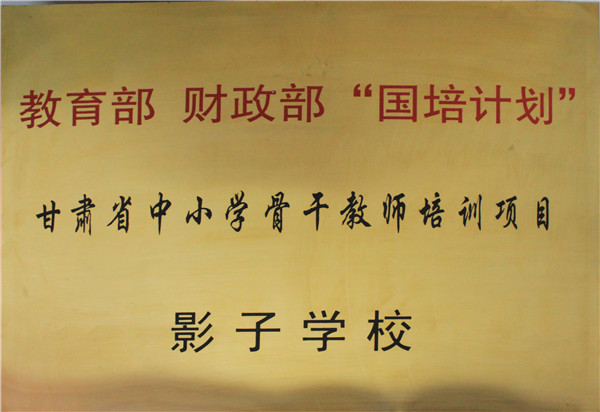 教育部 财政部“国培计划”
甘肃省中小学骨干教师培训项目
影子学校